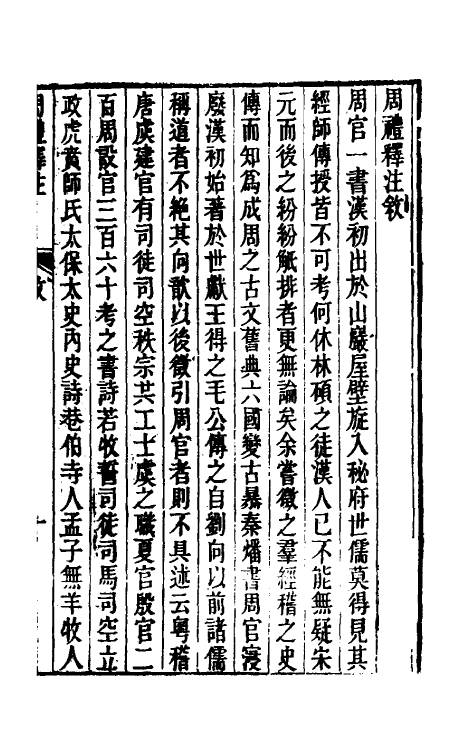 周禮釋注敘
周官一書漢初出於山巖屋壁旋入秘府世儒莫得見其
經師傳授皆不可考何休林碩之徒漢人已不能無疑宋
元而後之紛紛觝排者更無論矣余嘗徵之羣經稽之史
傳而知爲成周之古文舊典六國變古暴秦燔書周官寖
廢漢初始著於世獻王得之毛公傳之自劉向以前諸儒
稱道者不絕其向歆以後徵引周官者則不具述云粵稽
唐虞建官有司徒司空秩宗共工士虞之職夏官殷官二
百周設官三百六十考之書詩若牧誓司徒司馬司空立
政虎賁師氏太保太史內史詩巷伯寺人孟子無羊牧人
周禮釋注 敘